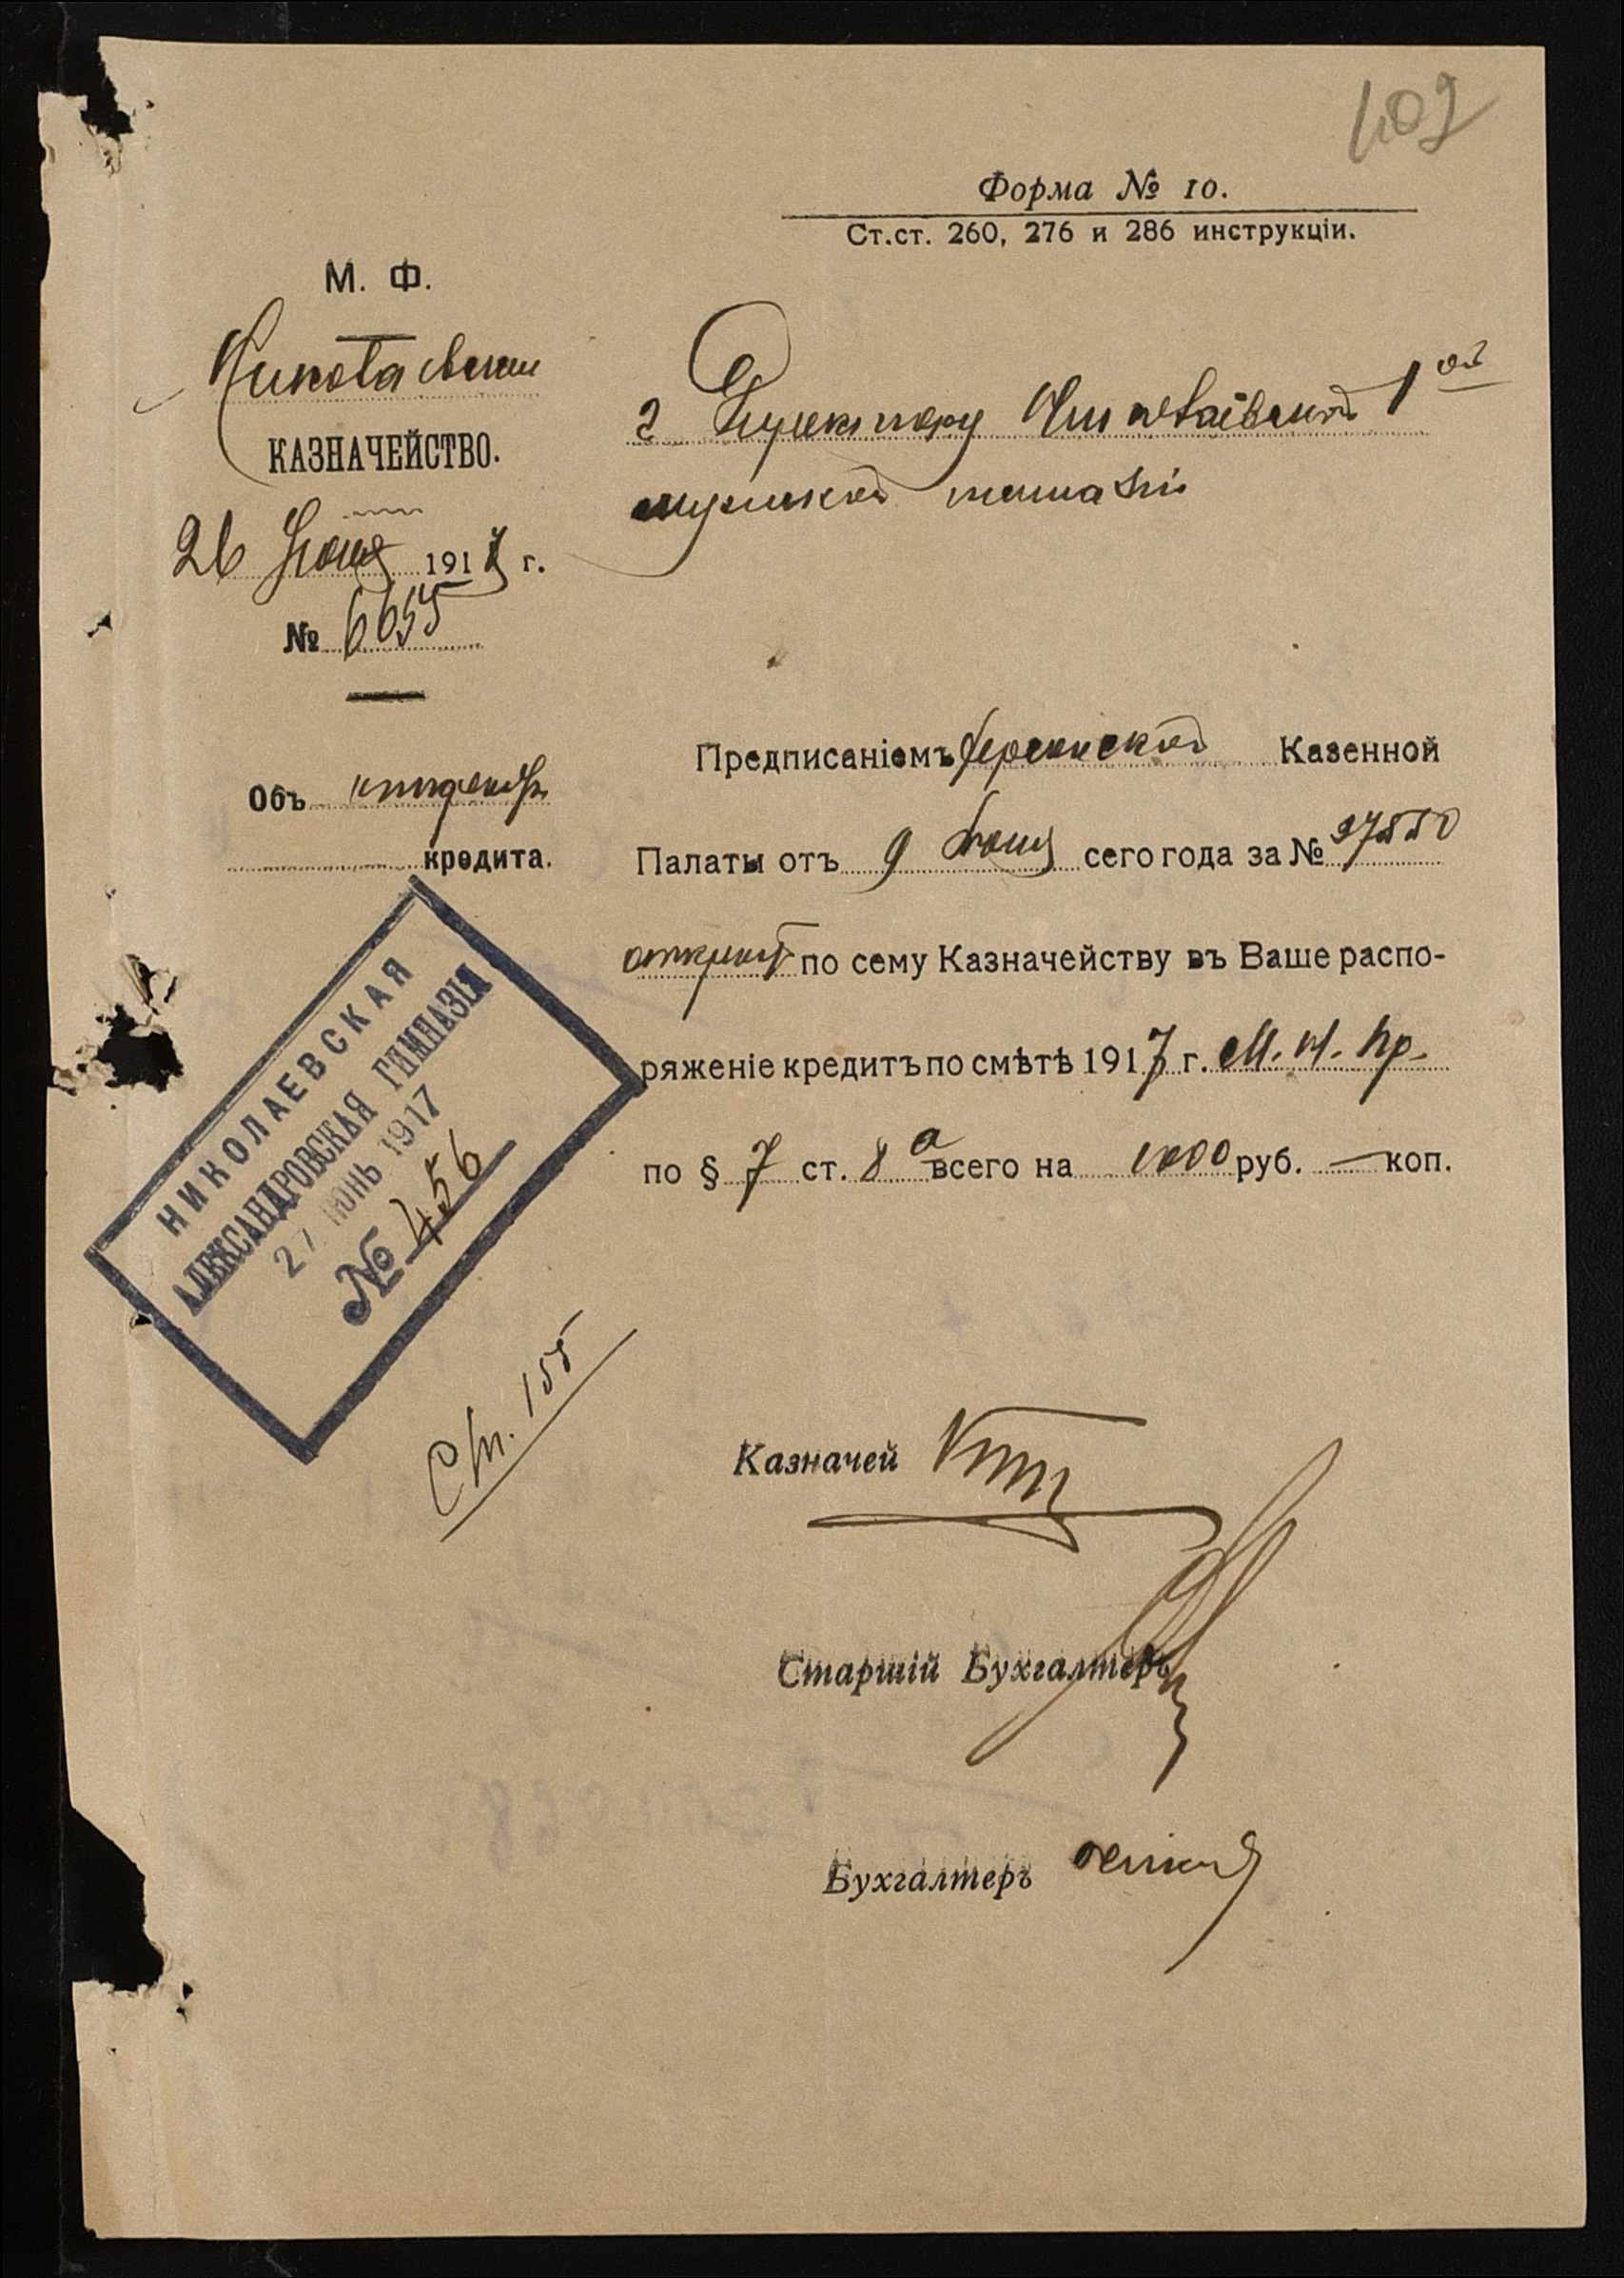 402
Форма № 10.
Ст.ст. 260, 276 и 286 инструкціи.
М. Ф.
Николаевское
КАЗНАЧЕЙСТВО.
26 Іюня 1917 г.
№ 6655
Г Директору Николаевской 1ой
мужской гимназіи
Объ
кредита.
Предписаніемъ Херсонской Казенной
Палаты отъ 9 Іюня сего года за № 27550
открытъ по сему Казначейству въ Ваше распо-
ряженіе кредитъ по смѣтѣ 1917 г. М. Н. Пр.
по § 7 ст. 8 а всего на 1000 руб. — коп.
НИКОЛАЕВСКАЯ
АЛЕКСАНДРОВСКАЯ ГИМНАЗІЯ
27 ИЮНЬ 1917
№ 456
Ст. 155
Казначей
Старшій Бухгалтеръ
Бухгалтеръ